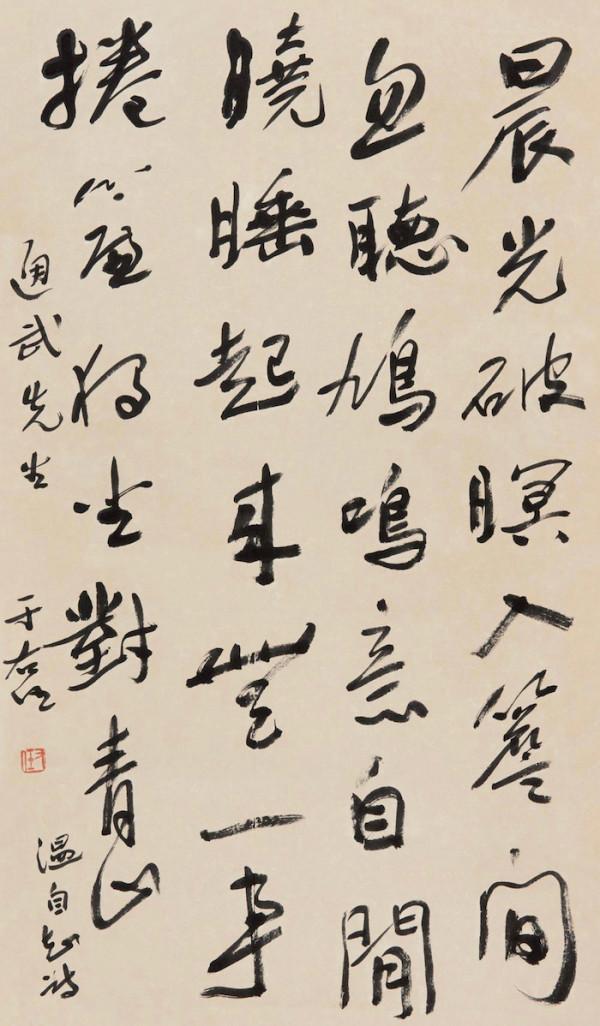 晨光破暝入簷間
忽聽鳩鳴意自閒
曉睡起來無一事
捲簾獨坐對青山
溫自知詩
通武先生
于右任
右任